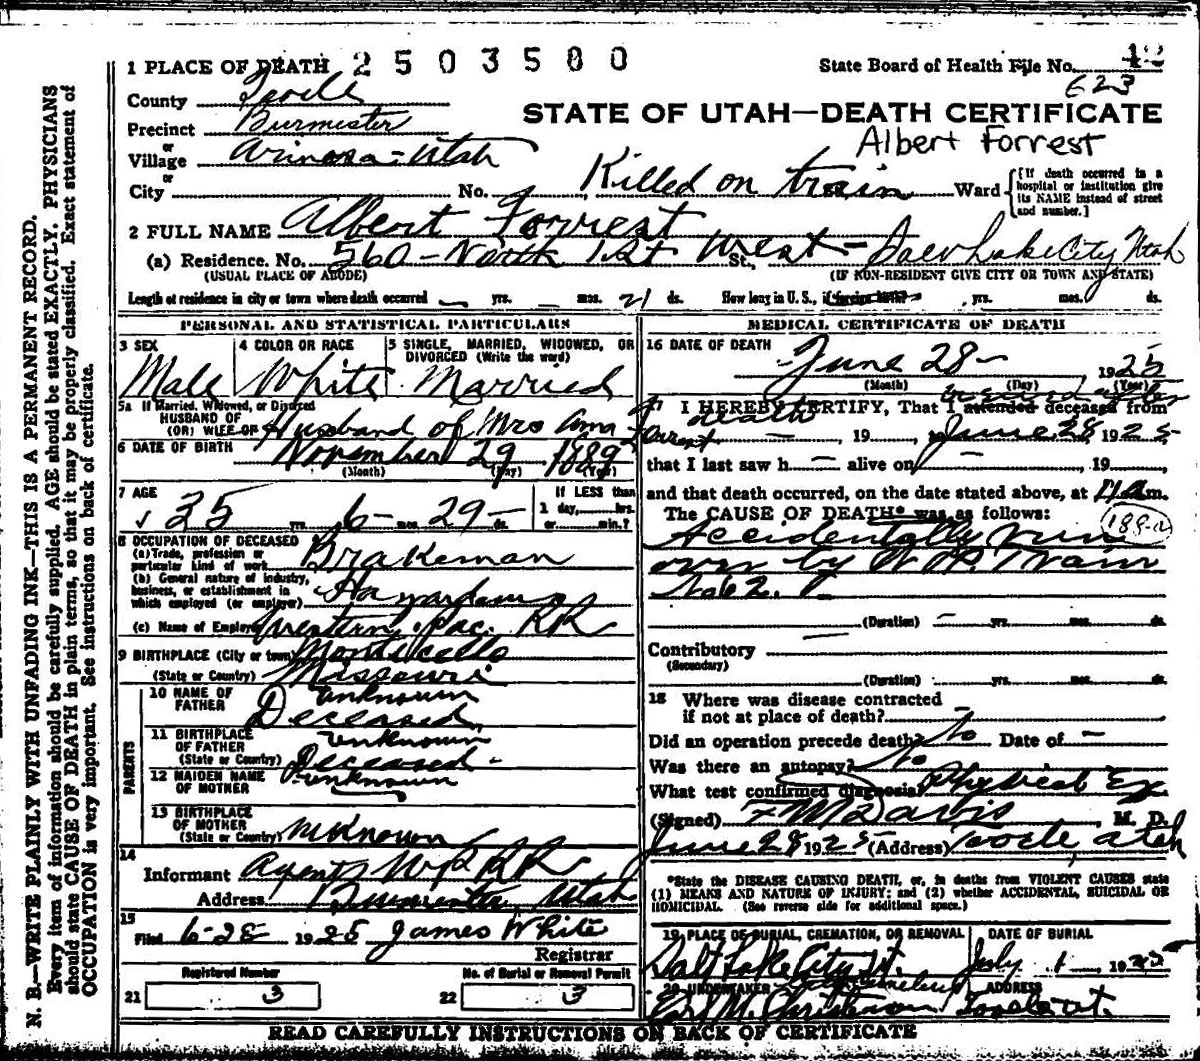 1 PLACE OF DEATH 2503580 State Board of Health File No. 42
623
County Tooele STATE OF UTAH—DEATH CERTIFICATE
Precinct Burmester
or
Albert Forrest
Village Arinosa - Utah
or
City No. Killed on train Ward
[If death occurred in a hospital or institution give its NAME instead of street and number.]
2 FULL NAME Albert Forrest
(a) Residence. No. 560 - North 1st St., West - Salt Lake City Utah
(USUAL PLACE OF ABODE) (IF NON-RESIDENT GIVE CITY OR TOWN AND STATE)
Length of residence in city or town where death occurred — yrs. — mos. 21 ds. How long in U. S., if foreign birth? yrs. mos. ds.
PERSONAL AND STATISTICAL PARTICULARS
3 SEX 4 COLOR OR RACE 5 SINGLE, MARRIED, WIDOWED, OR DIVORCED (Write the word)
Male White Married
5a If Married, Widowed, or Divorced
HUSBAND OF
(OR) WIFE OF Husband of Mrs Anna Forrest
6 DATE OF BIRTH November 29 1889
(Month) (Day) (Year)
7 AGE If LESS than
35 yrs. 6 - mos. 29 - ds. 1 day, hrs.
or min.?
8 OCCUPATION OF DECEASED
(a) Trade, profession or particular kind of work Brakeman
(b) General nature of industry, business, or establishment in which employed (or employer)
(c) Name of Employer Western Pac. RR
9 BIRTHPLACE (City or town) Monticello
(State or Country) Missouri
PARENTS
10 NAME OF FATHER unknown
Deceased
11 BIRTHPLACE OF FATHER (State or Country) unknown
Deceased -
12 MAIDEN NAME OF MOTHER unknown
13 BIRTHPLACE OF MOTHER (State or Country) unknown
14
Informant Agent W P RR
Address Burmester Utah
15
Filed 6-28 1925 James White
Registrar
Registered Number No. of Burial or Removal Permit
21 3 22 3
MEDICAL CERTIFICATE OF DEATH
16 DATE OF DEATH
June 28 - 1925
(Month) (Day) (Year)
after
17 I HEREBY CERTIFY, That I attended deceased from
death — , 19 , June 28 1925
that I last saw h — alive on — , 19
and that death occurred, on the date stated above, at 11 a m.
The CAUSE OF DEATH* was as follows:
188-a
Accidentally run
over by W P. Train
No 62.
(Duration) — yrs. mos. ds.
Contributory —
(Secondary)
(Duration) yrs. mos. ds.
18 Where was disease contracted
if not at place of death? —
Did an operation precede death? No Date of —
Was there an autopsy? No
What test confirmed diagnosis? Physical Ex
(Signed) F M Davis M. D.
June 28 1925 (Address) Tooele, Utah
*State the DISEASE CAUSING DEATH, or, in deaths from VIOLENT CAUSES state
(1) MEANS AND NATURE OF INJURY; and (2) whether ACCIDENTAL, SUICIDAL OR
HOMICIDAL. (See reverse side for additional space.)
19 PLACE OF BURIAL, CREMATION, OR REMOVAL DATE OF BURIAL
Salt Lake City Ut. July 1 1925
20 UNDERTAKER ADDRESS
Earl M. Christensen Tooele Ut.
READ CAREFULLY INSTRUCTIONS ON BACK OF CERTIFICATE
N. B.—WRITE PLAINLY WITH UNFADING INK—THIS IS A PERMANENT RECORD.
Every item of information should be carefully supplied. AGE should be stated EXACTLY. PHYSICIANS
should state CAUSE OF DEATH in plain terms, so that it may be properly classified. Exact statement of
OCCUPATION is very important. See instructions on back of certificate.